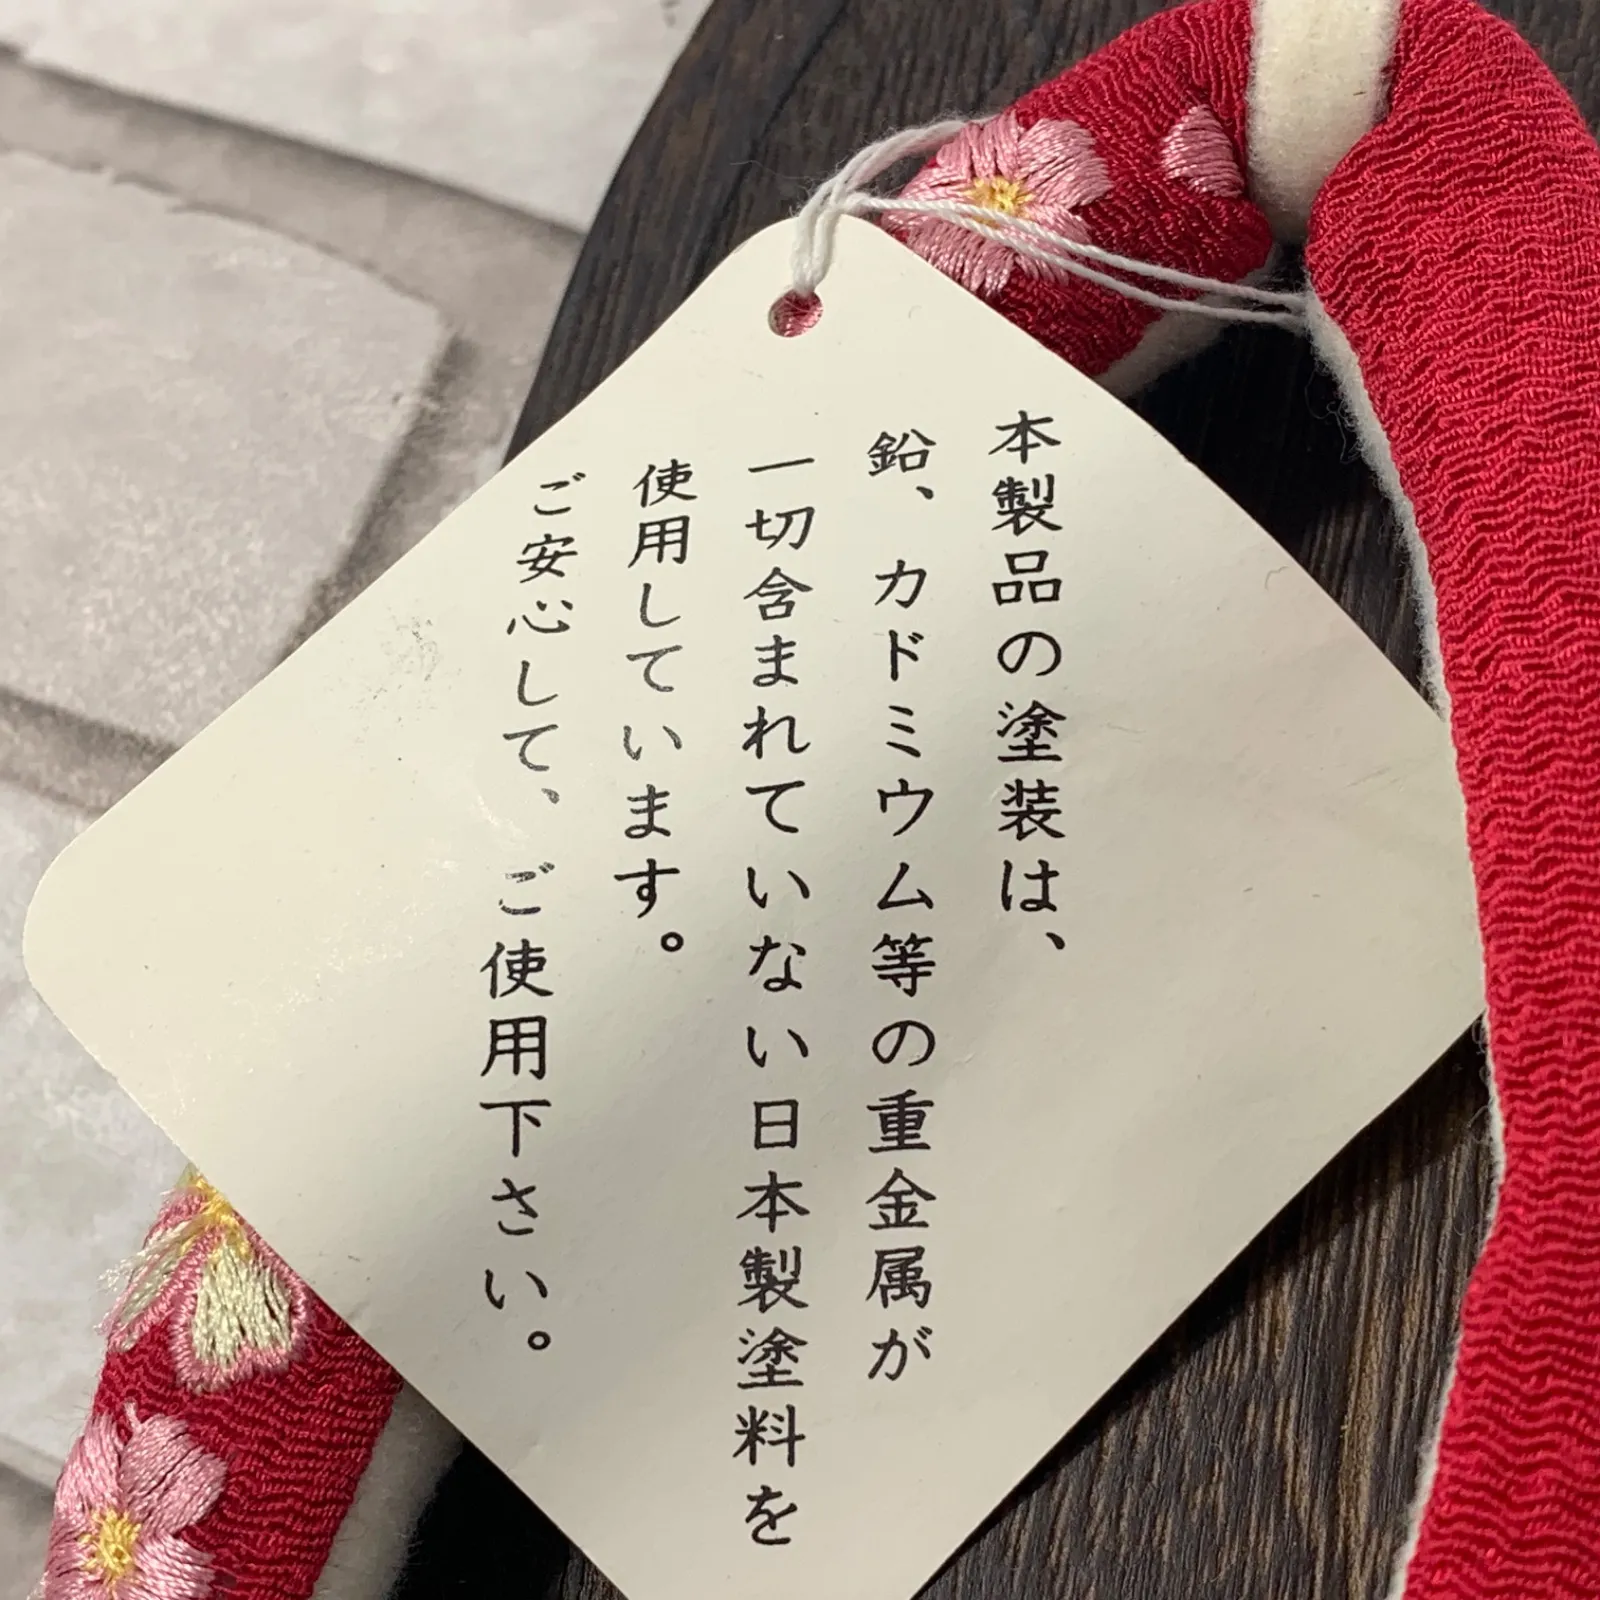 本製品の塗装は、
鉛、カドミウム等の重金属が
一切含まれていない日本製塗料を
使用しています。
ご安心して、ご使用下さい。